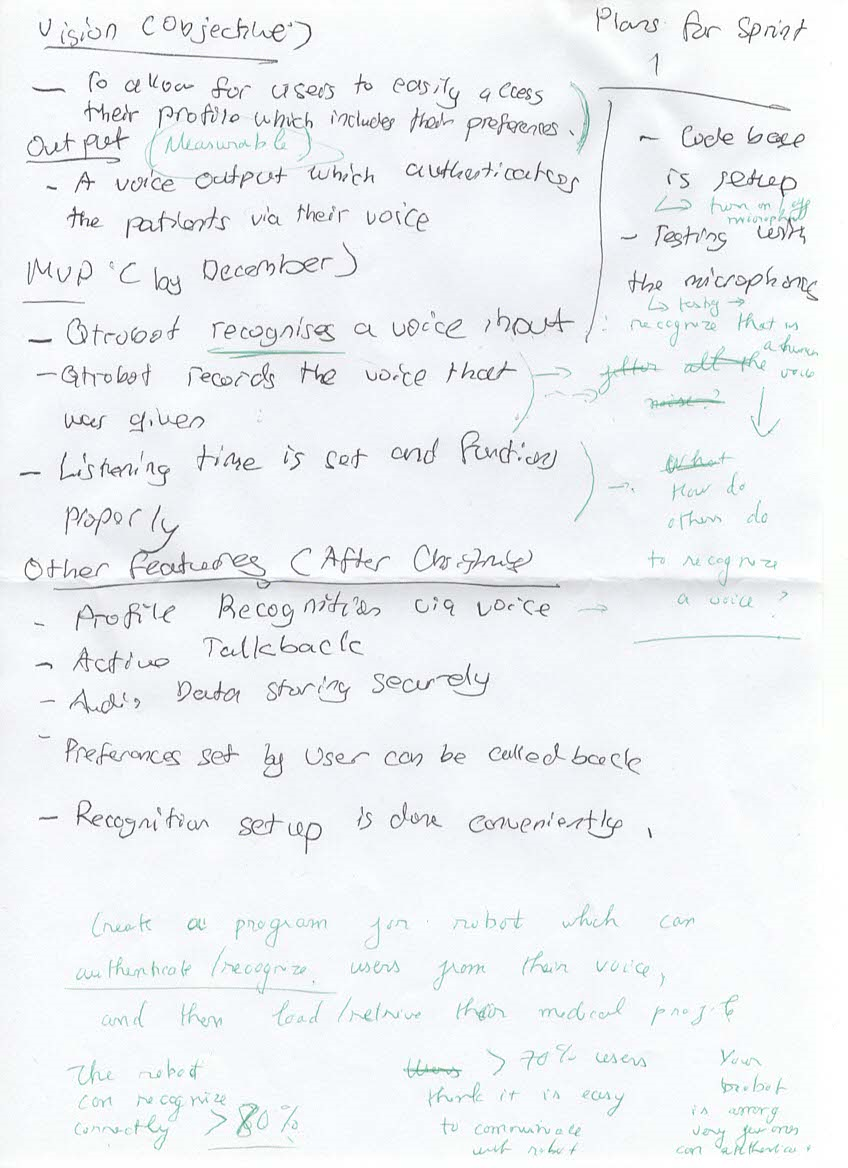 Vision (Objective)
- To allow for users to easily access
their profile which includes their preferences.
Output (Measurable)
- A voice output which authenticates
the patients via their voice
MVP (by December)
- Qtrobot recognises a voice input
- Qtrobot records the voice that
was given
- Listening time is set and function
properly
Other Features (After Christmas)
- Profile Recognition via voice
- Active Talkback
- Audio Data storing securely
- Preferences set by user can be called back
- Recognition set up is done conveniently.
Plans for Sprint
1
- Code base
is setup
↳ turn on/off
microphone
- Testing with
the microphone
↳ testing →
recognize that is
a human
voice
filter all the
noise?
What
How do
others do
to recognize
a voice?
Create a program for robot which can
authenticate/recognize users from their voice,
and then load/retrive their medical profile
The robot
can recognize
correctly >80%
Users > 70% users
think it is easy
to communicate
with robot
Your
robot
is among
very few ones
can